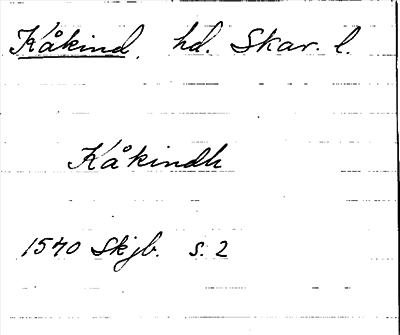 Kåkind, hd. Skar. l.
Kåkindh
1540 Skjb. s. 2